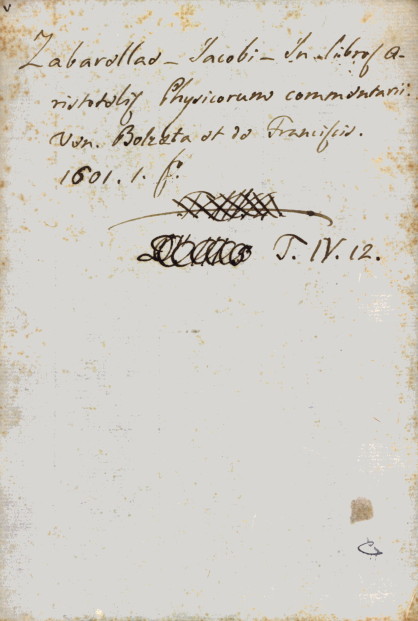 Zabarellae - Jacobi - In libros A-
ristotelis Physicorum commentarii:
Ven. Bolzeta et de Francisis.
1601. 1. f.°
T. IV. 12.